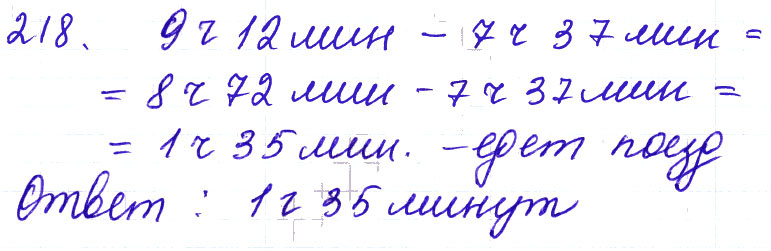 218. 9 ч 12 мин – 7 ч 37 мин =
= 8 ч 72 мин – 7 ч 37 мин =
= 1 ч 35 мин. – едет поезд
Ответ : 1 ч 35 минут